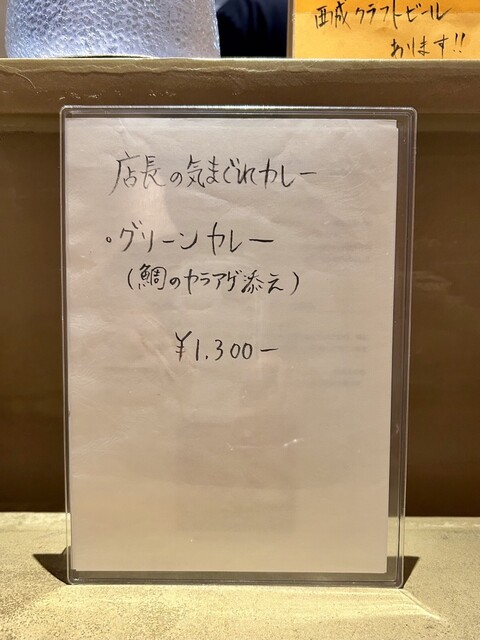 西成クラフトビール
あります!!
店長の気まぐれカレー
。グリーンカレー
(鯛のカラアゲ添え)
¥1,300ー